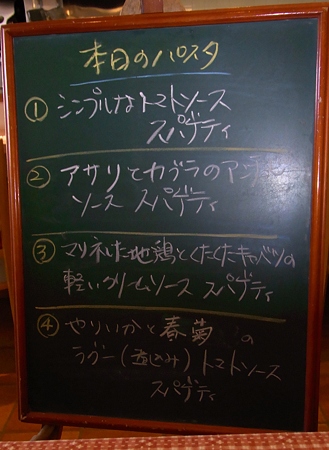 本日のパスタ
① シンプルなトマトソース
スパゲティ
② アサリとカブラのアン
ソース スパゲティ
③ マリネした地鶏とくたくたキャベツの
軽いクリームソース スパゲティ
④ やりいかと春菊の
ラグー(煮込み) トマトソース
スパゲティ